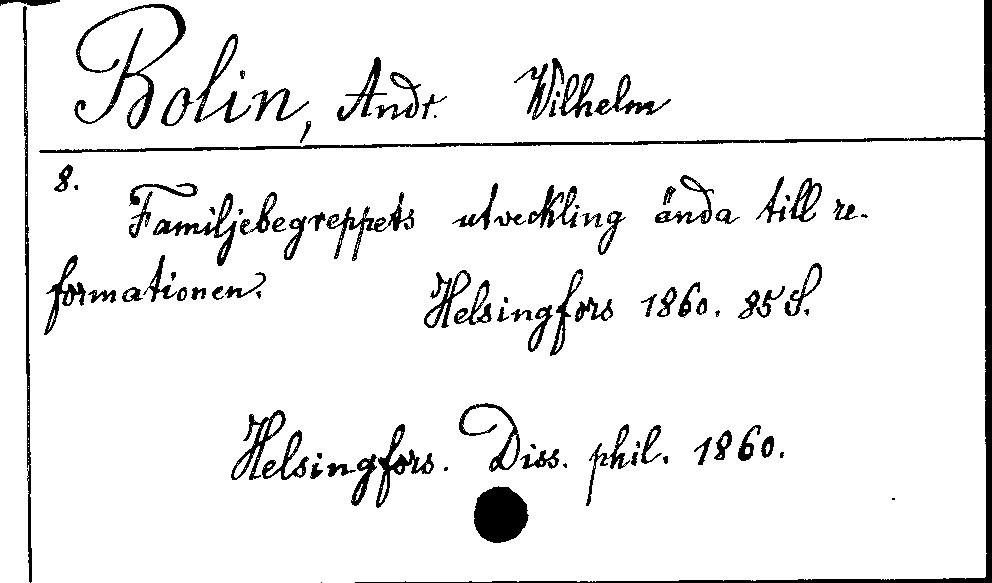 Bolin, Andr. Wilhelm
8.
Familjebegreppets utveckling ända till re-
formationen.
Helsingfors 1860. 85 S.
Helsingfors. Diss. phil. 1860.